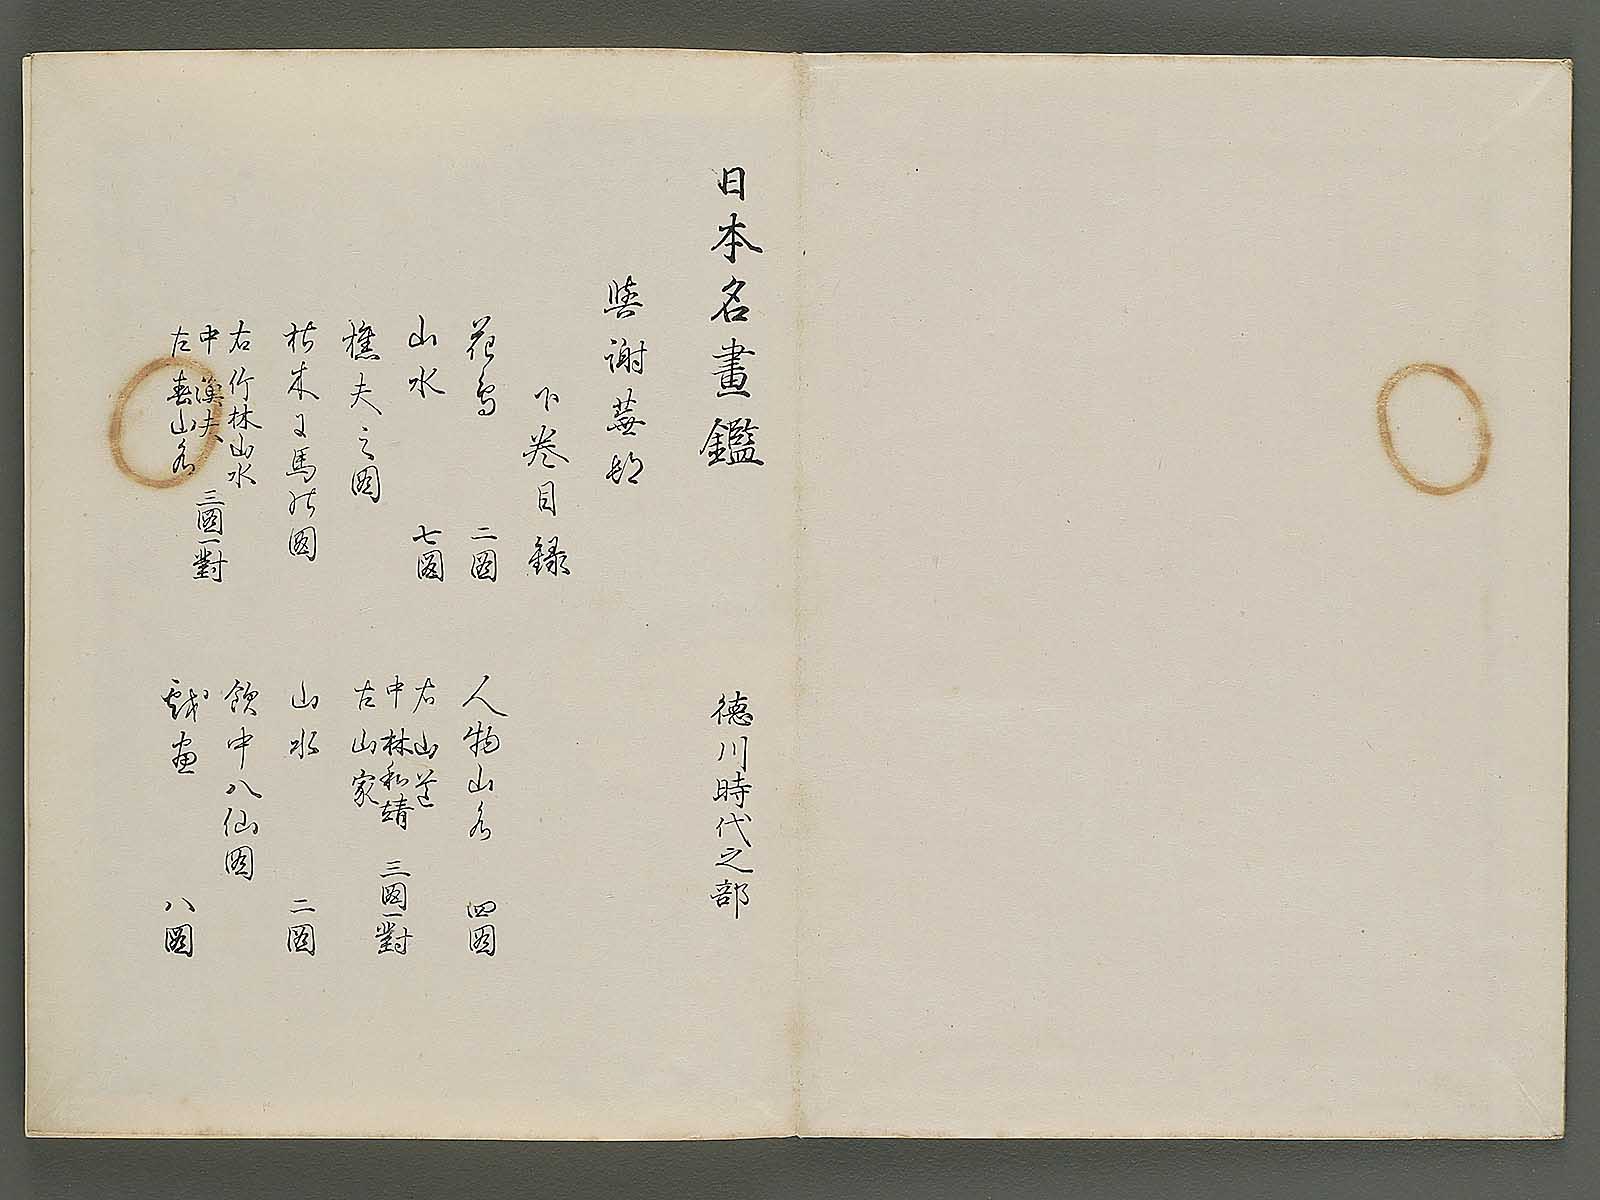 日本名畫鑑 徳川時代之部
與謝蕪村
下卷目録
花鳥 二圖
山水 七圖
樵夫之圖
枯木ニ馬の圖
右竹林山水
中漁夫 三圖一對
左春山水
人物山水 四圖
右山荘
中林和靖 三圖一對
左山家
山水 二圖
飲中八仙圖
戯画 八圖